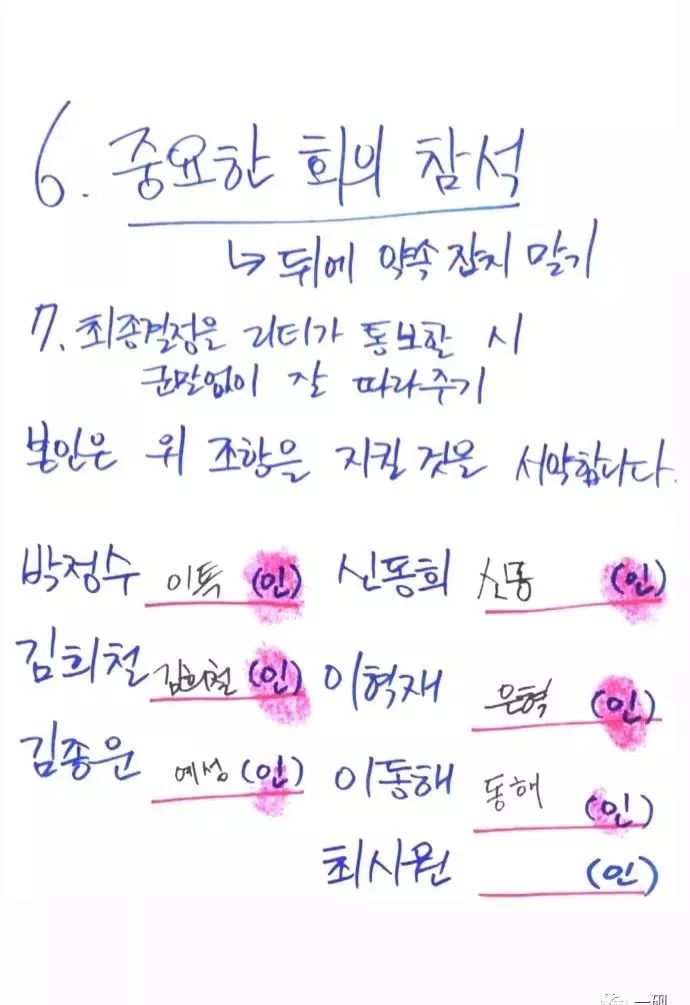 6. 중요한 회의 참석
↳ 뒤에 약속 잡지 말기
7. 최종결정을 리더가 통보할 시
군말없이 잘 따라주기
본인은 위 조항을 지킬 것을 서약합니다.
박정수 이특 (인) 신동희 신동 (인)
김희철 김희철 (인) 이혁재 은혁 (인)
김종운 예성 (인) 이동해 동해 (인)
최시원 (인)
一砚